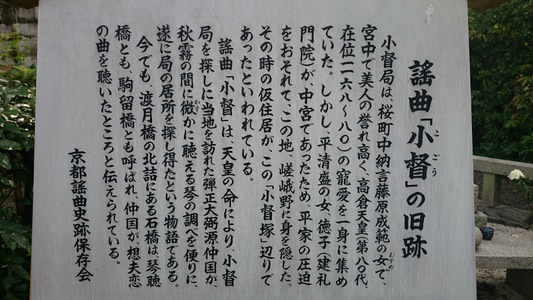 謡曲「小督」の旧跡
こごう
小督局は桜町中納言藤原成範の女で、
むすめ
宮中で美人の誉れ高く、高倉天皇(第八〇代、
在位一一六八〜八〇)の寵愛を一身に集め
ていた。しかし、平清盛の女、徳子(建礼
門院)が中宮であったため、平家の圧迫
をおそれて、この地、嵯峨野に身を隠した。
その時の仮住居が、この「小督塚」辺りで
あったといわれている。
謡曲「小督」は、天皇の命により、小督
局を探しに当地を訪れた弾正大弼源仲国が、
秋霧の間に微かに聴える琴の調べを便りに、
かす
遂に局の居所を探し得たという物語である。
今でも、渡月橋の北詰にある石橋は、琴聴
橋とも、駒留橋とも呼ばれ、仲国が、想夫恋
の曲を聴いたところと伝えられている。
京都謡曲史跡保存会